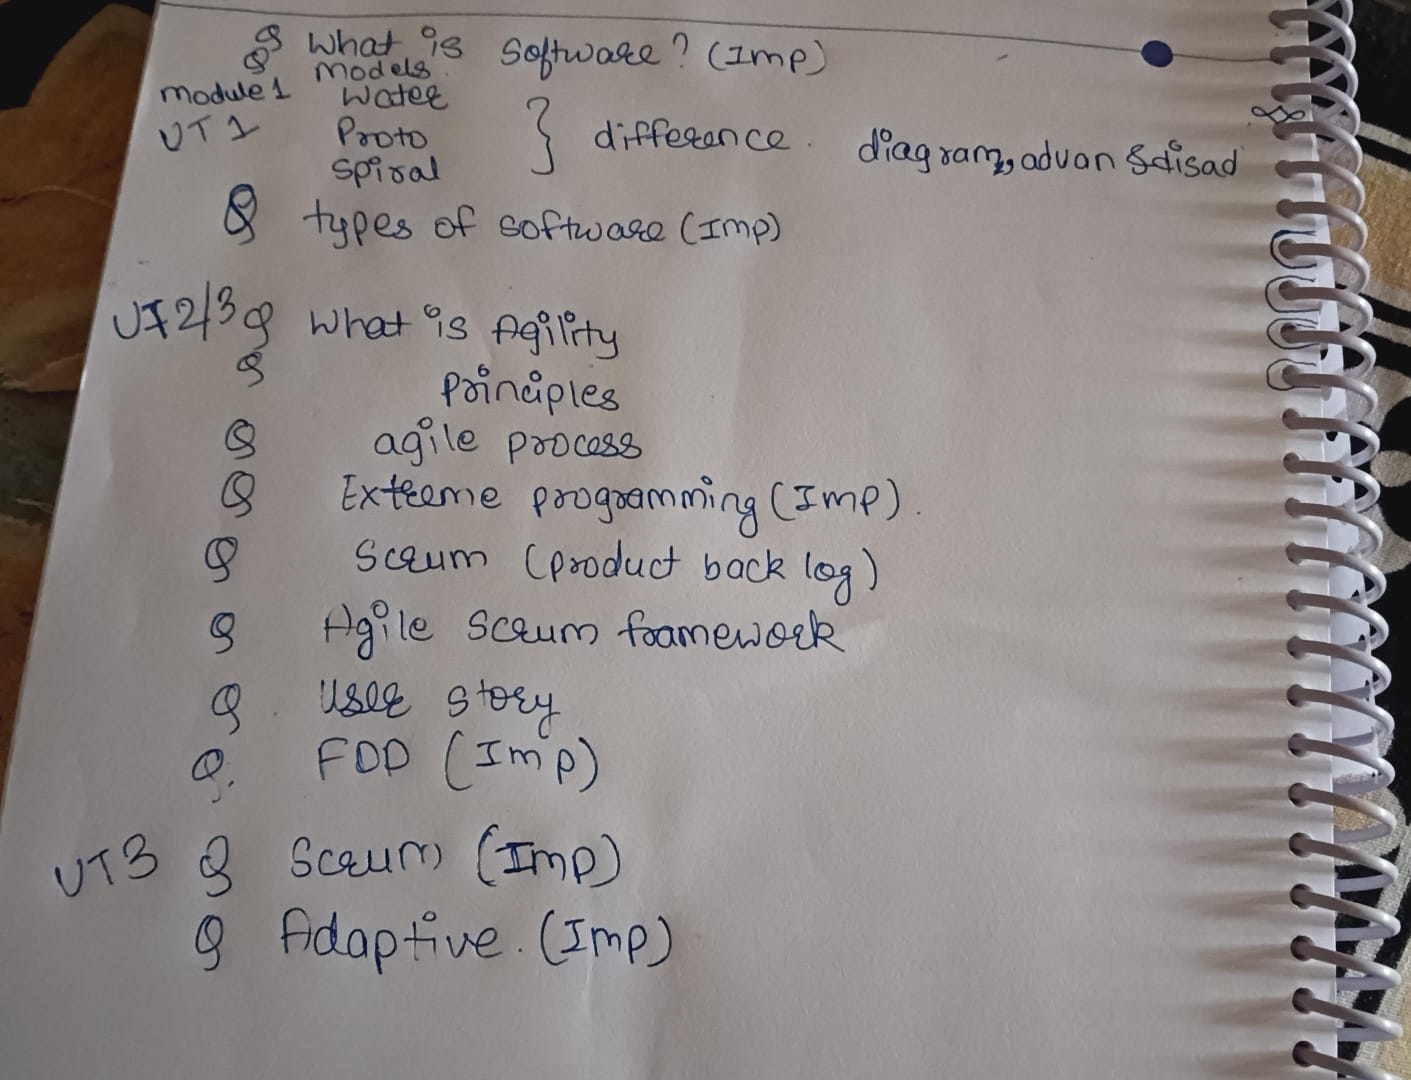 Q What is Software? (Imp)
Q Models.
Module 1 Water
UT 1 Proto } difference. diagram, advan & disad
Spiral
Q types of software (Imp)
UT 2/3 Q What is Agility
Q Principles
Q agile process
Q Extreme programming (Imp).
Q Scrum (product back log)
Q Agile Scrum framework
Q. User story
Q. FDD (Imp)
UT 3 Q Scrum (Imp)
Q Adaptive. (Imp)